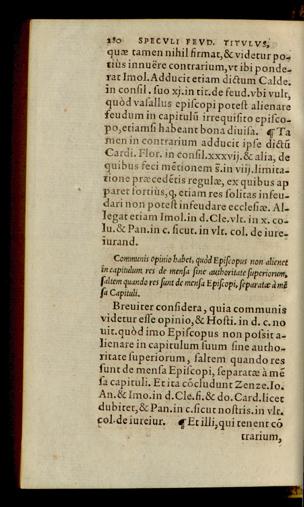 280 SPECVLI FEVD. TITVLVS,
quæ tamen nihil firmat,& videtur po-
tiùs innuëre contrarium, vt ibi ponde-
rat Imol. Adducit etiam dictum Calde.
in consil. suo xj. in tit. de feud. vbi vult,
quòd vasallus episcopi potest alienare
feudum in capitulū irrequisito episco-
po, etiamsi habeant bona diuisa. ¶ Ta
men in contrarium adducit ipse dictū
Cardi. Flor. in consil. xxxvij. & alia, de
quibus feci mētionem s̄. in viij. limita-
tione præcedētis regulæ, ex quibus ap
paret fortiùs, q, etiam res solitas infeu-
dari non potest infeudare ecclesiæ. Al-
legat etiam Imol. in d. Cle. vlt. in x. co-
lu. & Pan. in c. sicut. in vlt. col. de iure-
iurand.
Communis opinio habet, quòd Episcopus non alienet
in capitulum res de mensa sine authoritate superiorum,
saltem quando res sunt de mensa Episcopi, separatæ à mē
sa Capituli.
Breuiter considera, quia communis
videtur esse opinio, & Hosti. in d. c. no
uit. quòd imo Episcopus non possit a-
lienare in capitulum suum sine autho-
ritate superiorum, saltem quando res
sunt de mensa Episcopi, separatæ à mē
sa capituli. Et ita cōcludunt Zenze. Io.
An. & Imo. in d. Cle. fi. & do. Card. licet
dubitet, & Pan. in c. sicut nostris. in vlt.
col. de iureiur. ¶ Et illi, qui tenent cō
trarium,